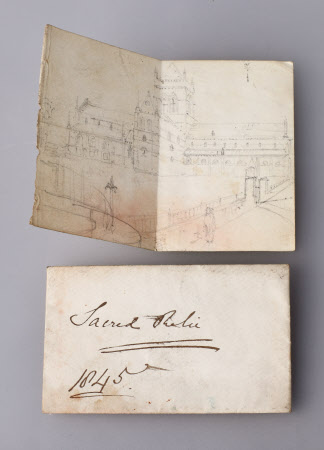 Sacred Relic
1845